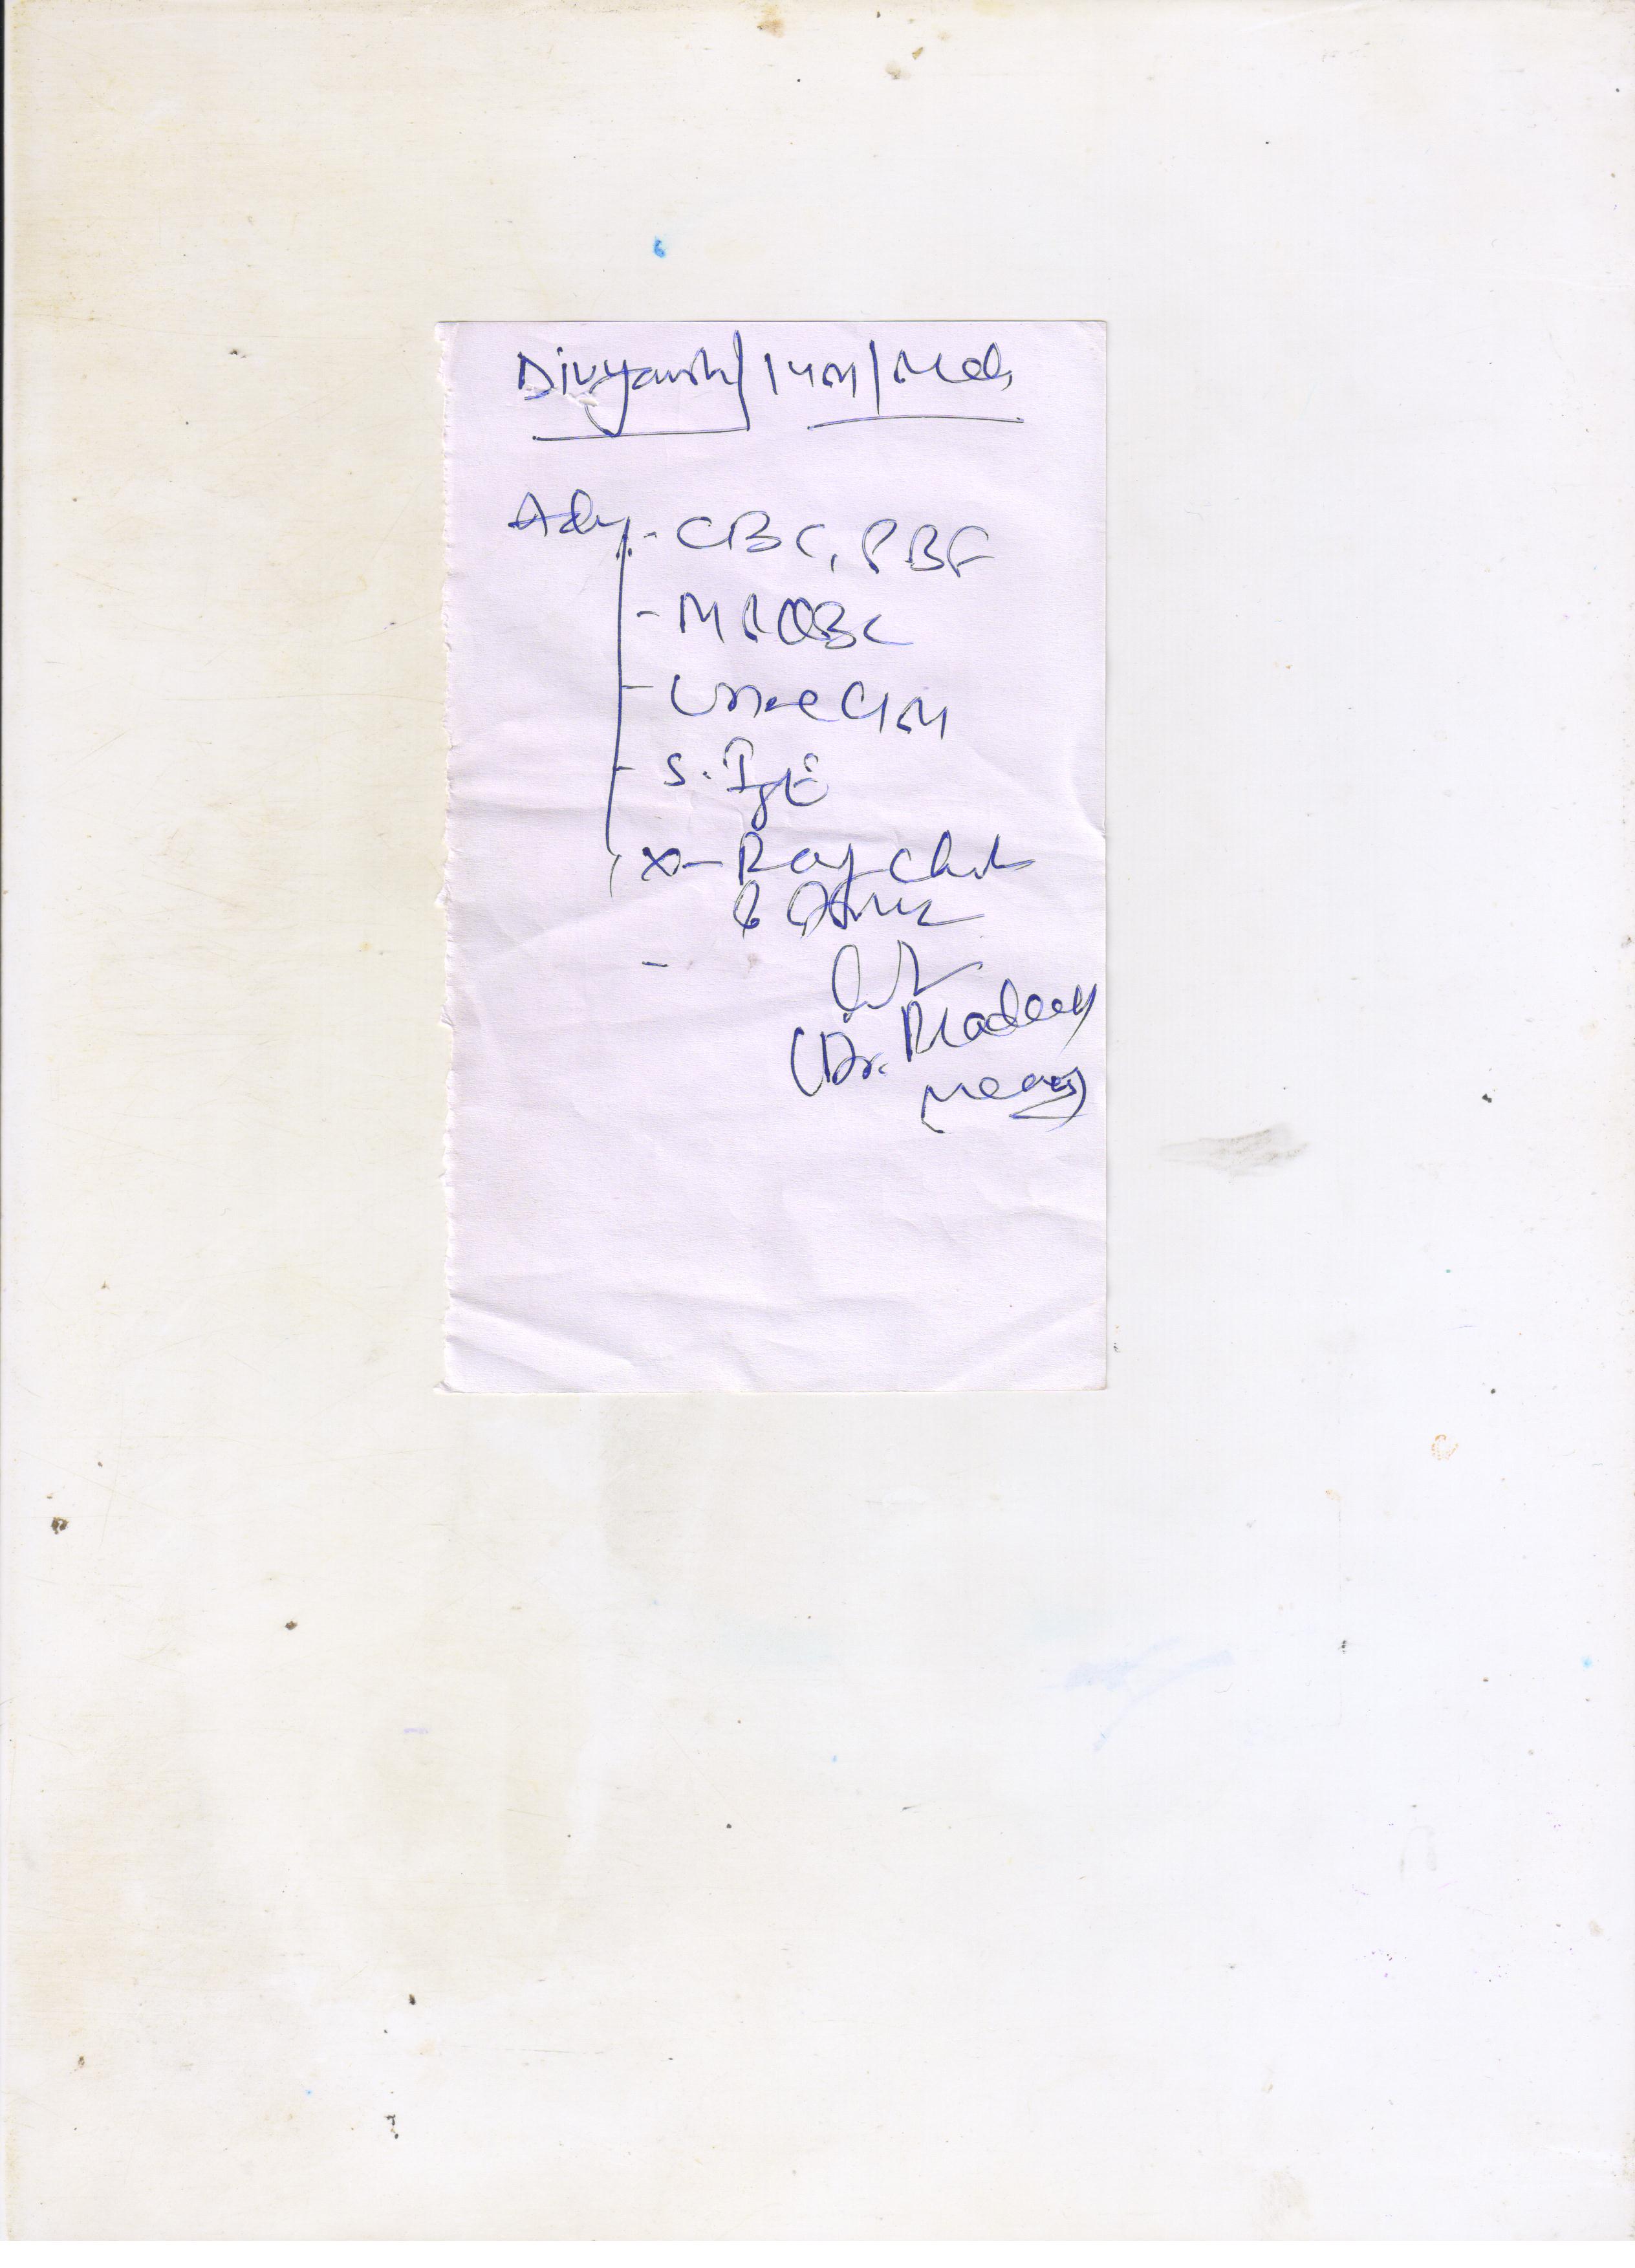 Divyansh/14M/Male
Adv. - CBC, PBF
-
- Urine C/M
- S. IgE
X-Ray Chest
&
-
(Dr. Pradeep
Meena)